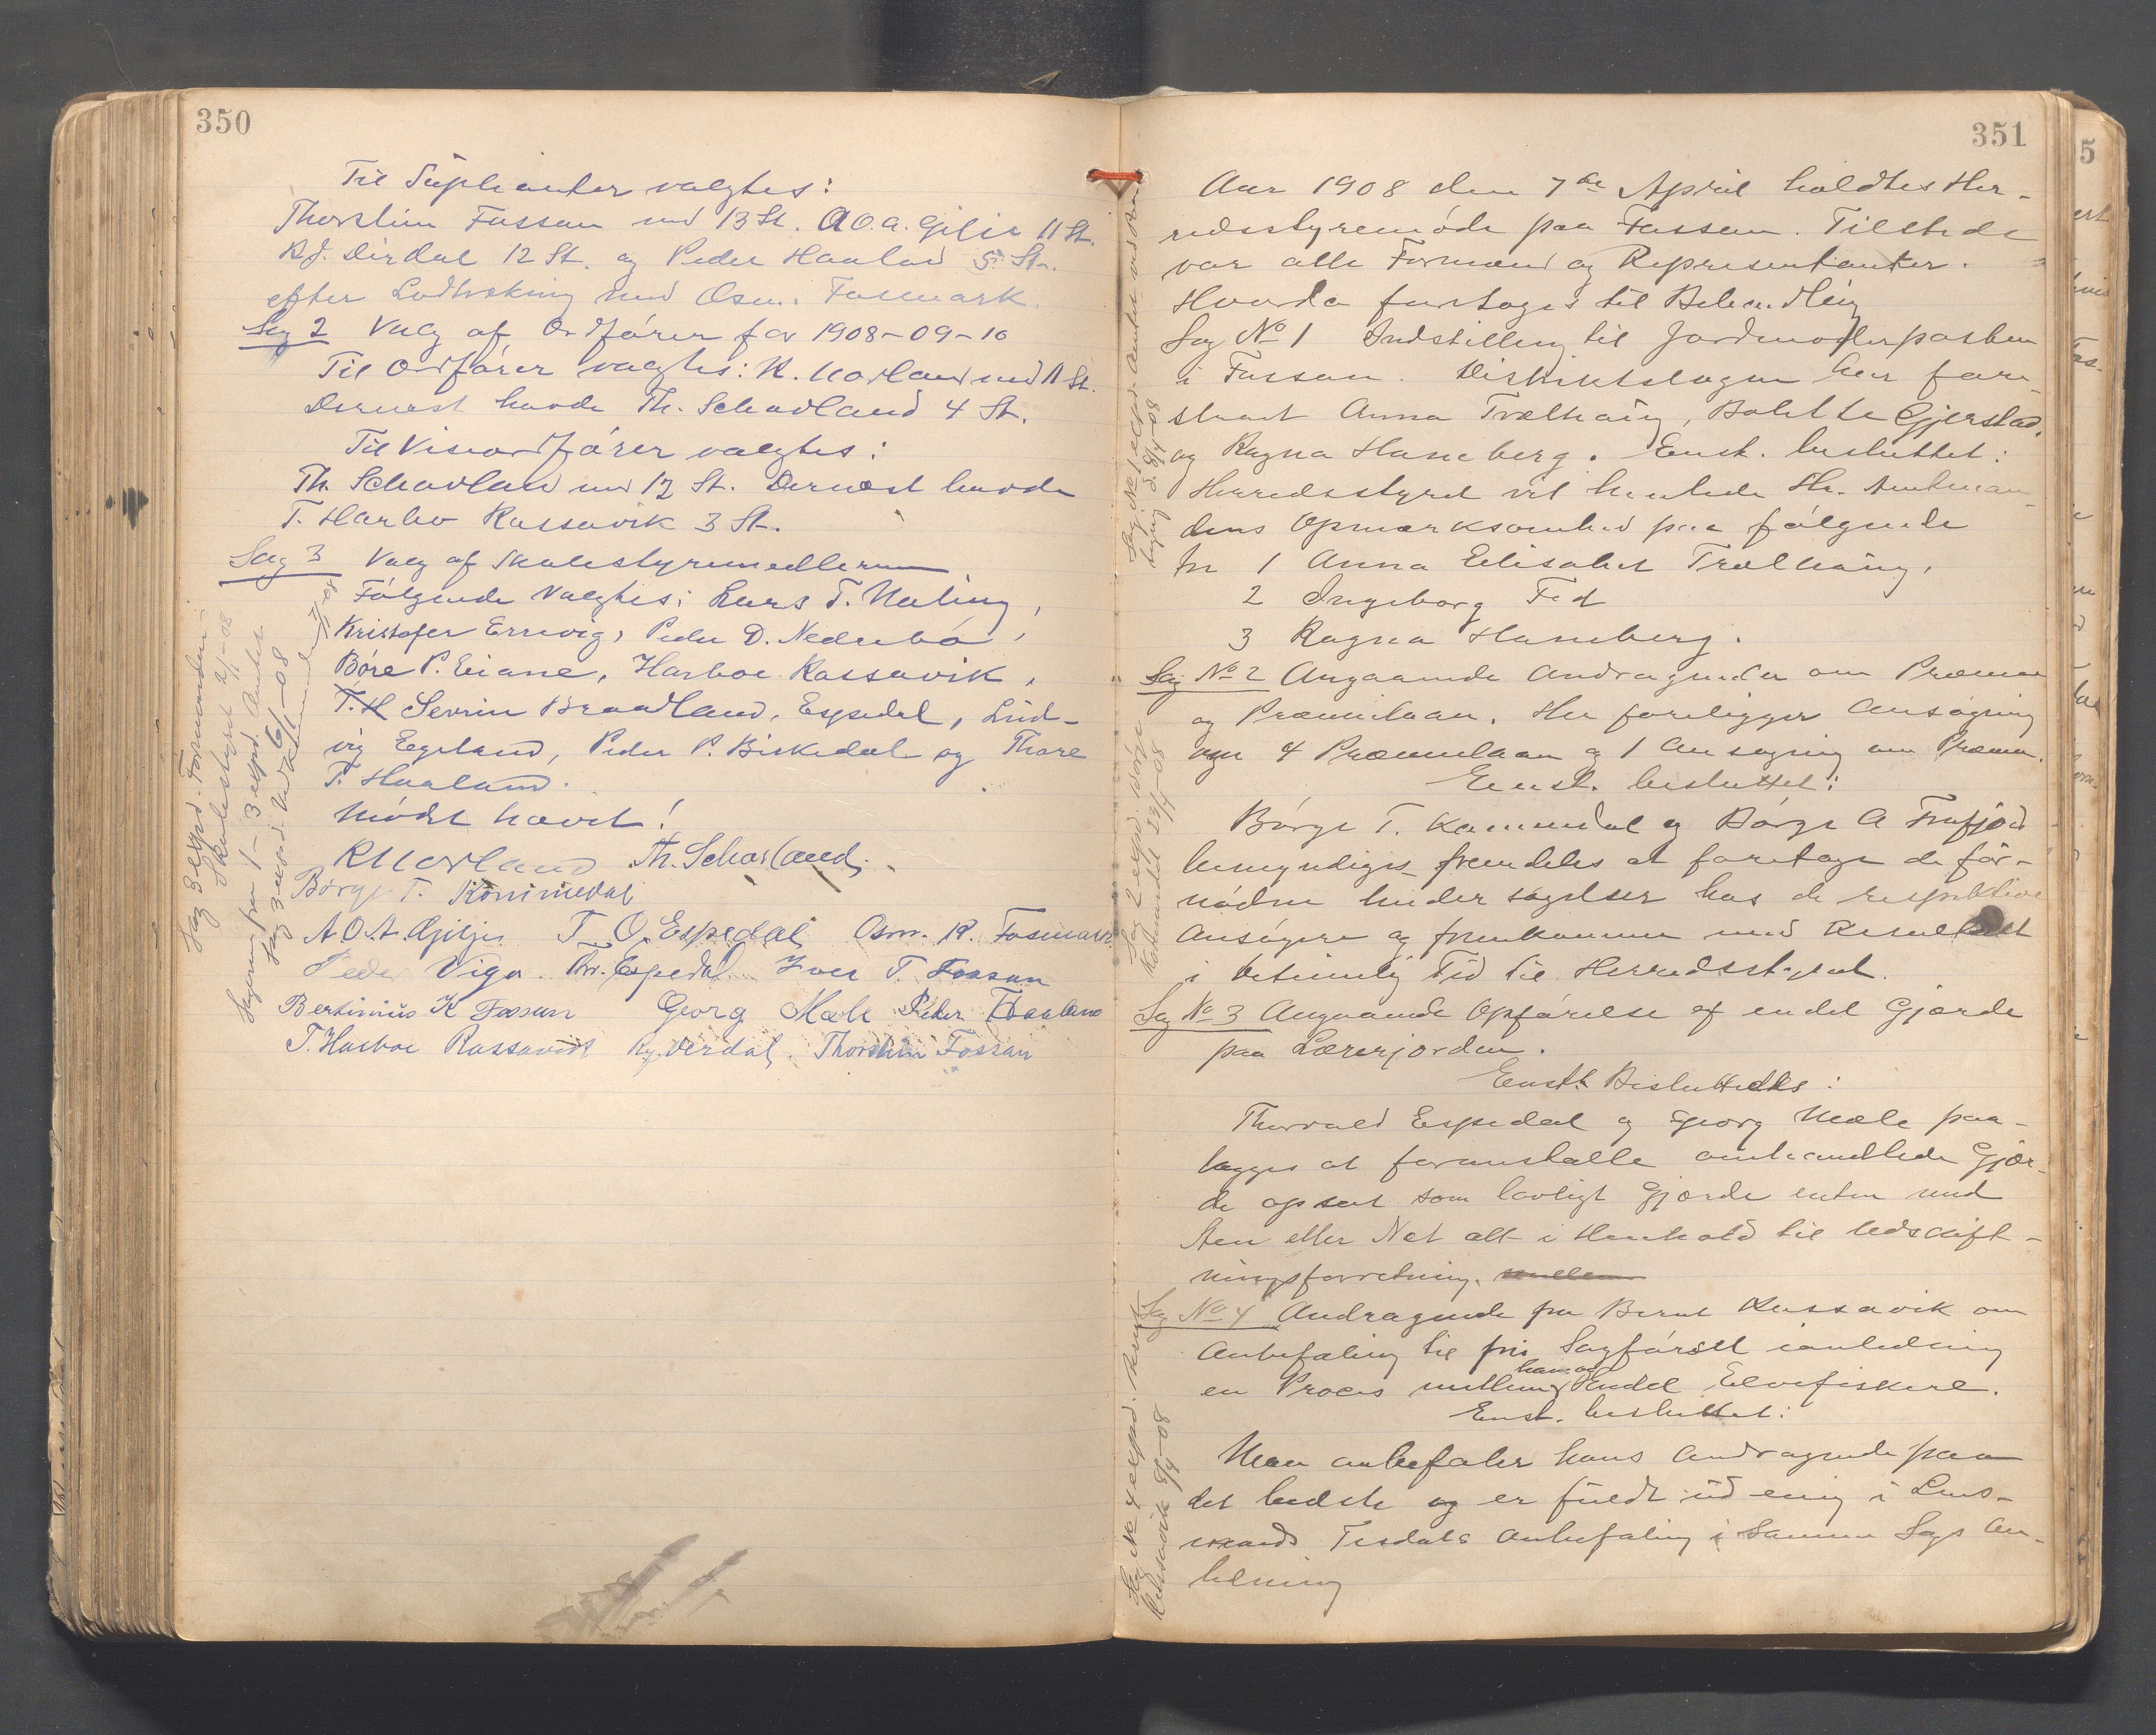 350
Til Suplianter valgtes:
Thorstein Fossan med 13 St. A.O.A. Giljie 11 St.
Kj. Dirdal 12 St. og Peder Haaland 5 St.
efter Lodtrækning med Osm. Fosmark.
Sag 2 Valg af Ordfører for 1908-09-10
Til Ordfører valgtes: K. Morland med 11 St.
Dernæst havde Th. Schavland 4 St.
Til Viseordfører valgtes:
Th. Schavland med 12 St. Dernæst havde
T. Harbo Rassavik 3 St.
Sag 3 Valg af Skolestyremedlemmer
Følgende Valgtes: Lars T. Maling,
Kristofer Errevig, Peder D. Nedrebø,
Børe P. Eiane, Harboe Rassavik,
T. H Sevrin Braadland, Espedal, Lud-
vig Egeland, Peder P. Birkedal og Thore
T. Haaland.
Mødet hævet!
K Morland Th. Schavland.
Børge T. Kommedal
A O A. Giljje T. O. Espedal Osm. R. Fosmark
Peder Viga. Tr. Espedal Iver T. Fossan
Bertinius K Fossan Georg Mæle Peder Haaland
T. Harboe Rassavik Kj. Dirdal Thorstein Fossan
Sag 3 exspd. Formanden i
Skolestyret 2/1-08
Sagerne fra 1-3 expd. Amtet
6/1-08
351
Aar 1908 den 7de April holdtes Her-
redsstyremøde paa Fossan. Tilstede
var alle Formænd og Representanter.
Hvorda foretoges til Behandling
Sag No 1 Indstilling til Jordmoderposten
i Fossan. Distriktslægen har fore-
slaaet Anna Trælhaug, Bolette Gjerstad,
og Ragna Haneberg. Enst. besluttet:
Herredsstyret vil henlede Hr. Amtman-
dens Opmærksomhed paa følgende
No 1 Anna Elisabet Trælhaug,
2 Ingeborg Fed
3 Ragna Haneberg.
Sag No 2 Angaaende Andragender om Præmie
og Præmielaan. Her foreligger Ansøgning
om 4 Præmielaan og 1 Ansøgning om Præmie.
Enst. besluttet:
Børge T. Kommedal og Børge A Frafjord
bemyndiges fremdeles at foretage de for-
nødne Undersøgelser hos de respektive
Ansøgere og fremkomme med Resultatet
i betimelig Tid til Herredsstyret.
Sag No 3 Angaaende Opførelse af endel Gjærde
paa Lærerjorden.
Enst. Besluttedes:
Thorvald Espedal og Georg Mæle paa-
lægges at foranstalte omhandlede Gjær-
de opsat som lovligt Gjærde enten med
Sten eller Net alt i Henhold til Udskift-
ningsforretning. mellem
Sag No 4 Andragende fra Bernt Rassavik om
Anbefaling til fri Sagførsel ianledning
en Proces mellem ham og Endel Elvefiskere.
Enst. besluttet:
Man anbefaler hans Andragende paa
det bedste og er fuldt ud enig i Lens-
mand Tisdals Anbefaling i samme Sags An-
ledning
Sag No 1 expd. Amtet
d. 8/4 08
Sag 2 expd. Børge
Kommedal 29/4-08
Sag No 4 expd. Bernt
Rassavik 8/4-08